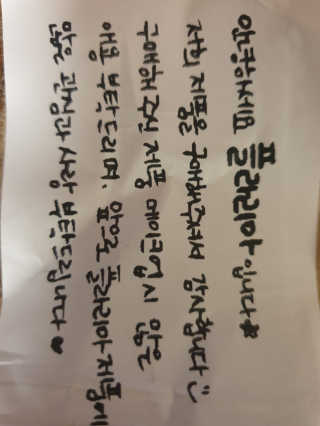 안녕하세요 플라리아 입니다★
저희 제품을 구매해주셔서 감사합니다 :)
구매해 주신 제품 메이크업시 많은
애용 부탁드리며, 앞으로 플라리아 제품에
많은 관심과 사랑 부탁드립니다 ♥